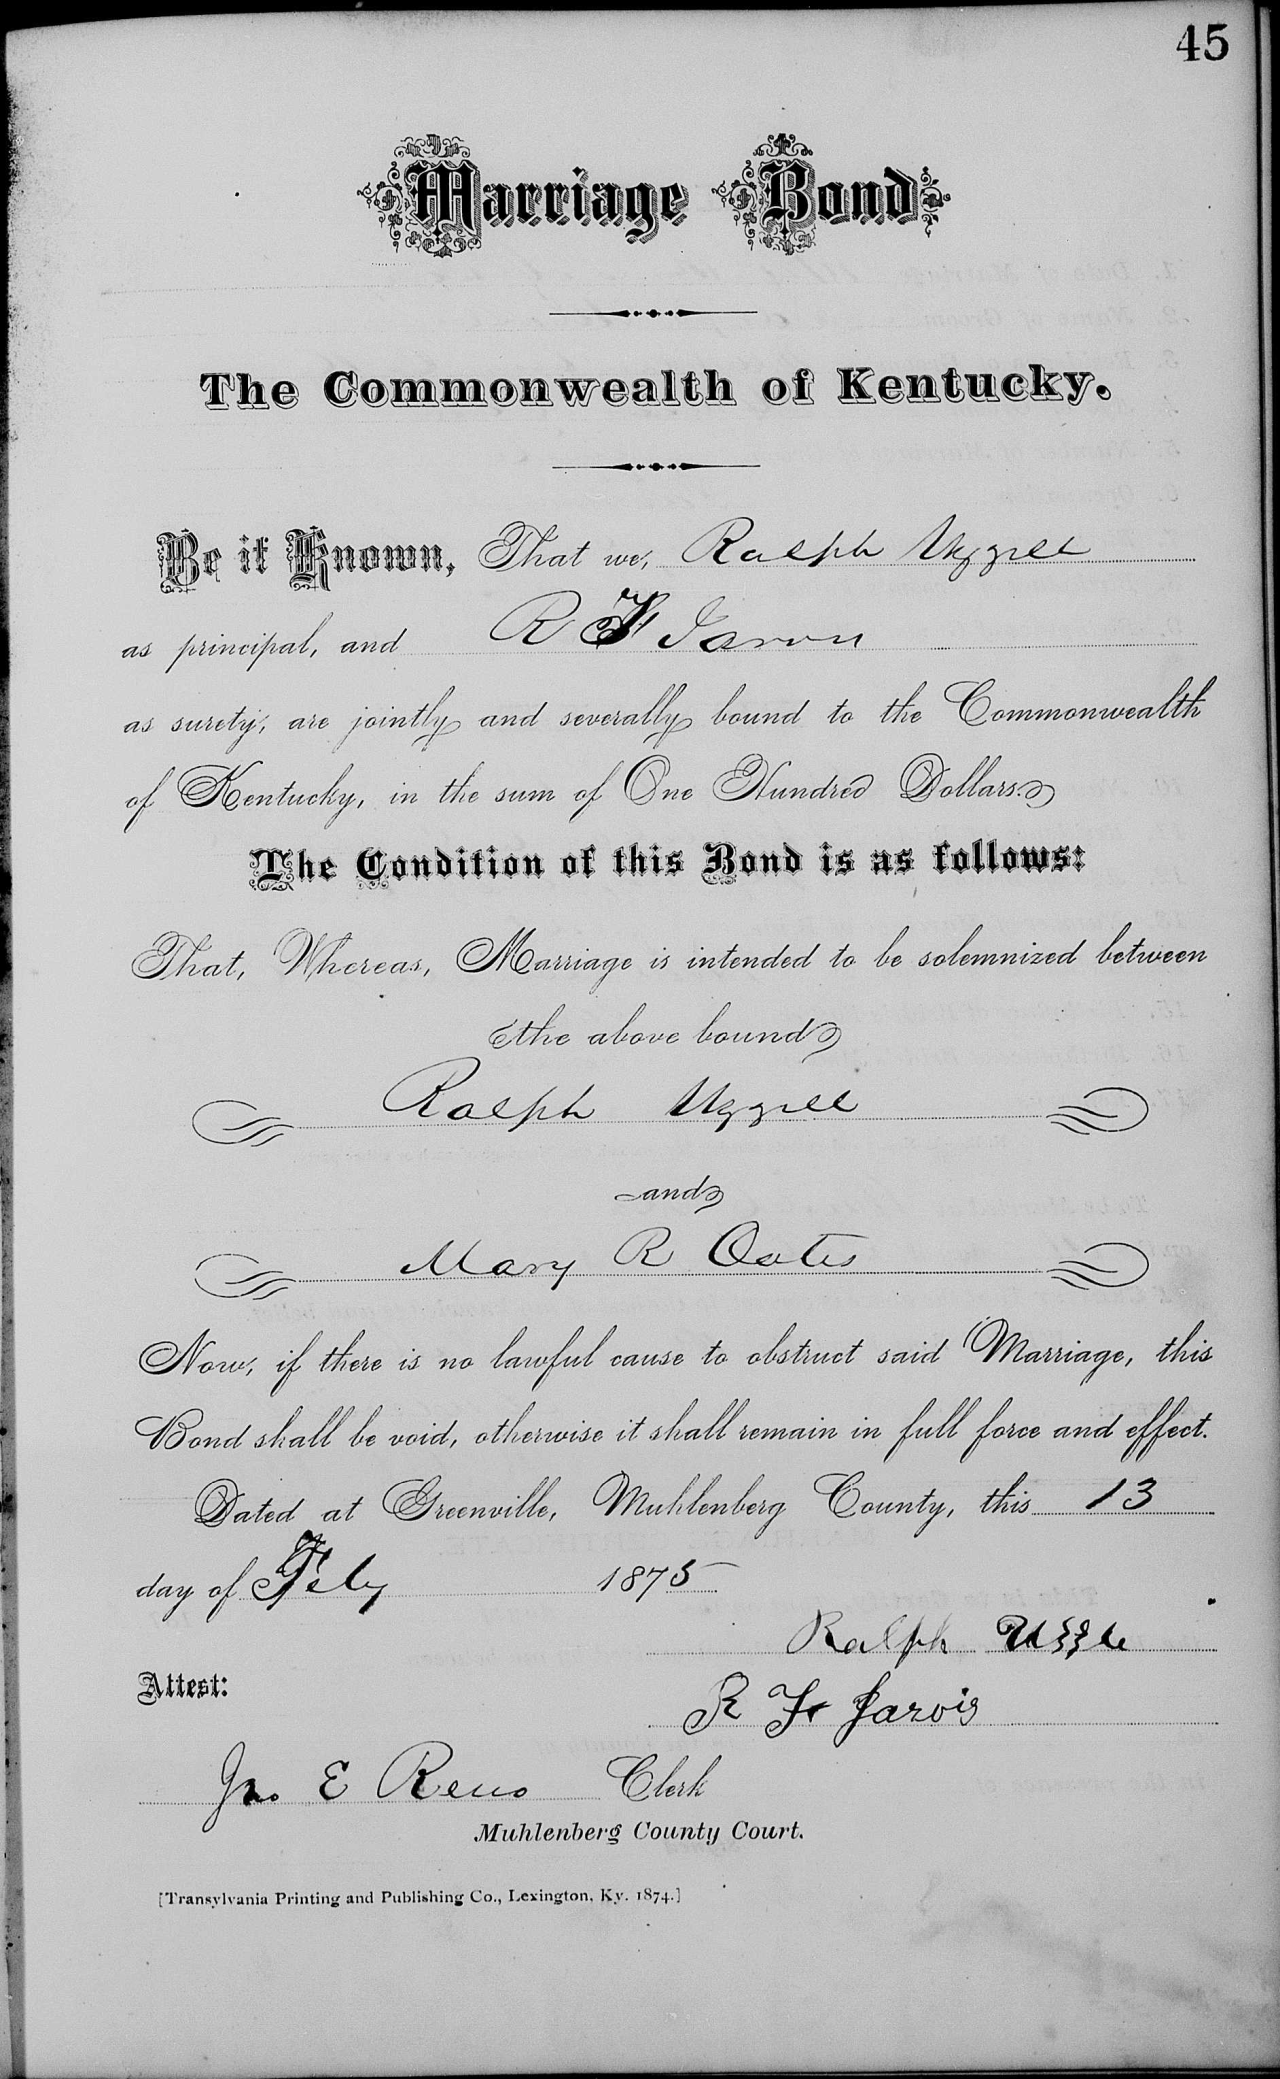 45
Marriage Bond
The Commonwealth of Kentucky.
Be it Known, That we, Ralph Uzzell
as principal, and R F Jarvis
as surety, are jointly and severally bound to the Commonwealth
of Kentucky, in the sum of One Hundred Dollars.
The Condition of this Bond is as follows:
That, Whereas, Marriage is intended to be solemnized between
the above bound
Ralph Uzzell
and
Mary R Oates
Now, if there is no lawful cause to obstruct said Marriage, this
Bond shall be void, otherwise it shall remain in full force and effect.
Dated at Greenville, Muhlenberg County, this 13
day of Feby 1875
Ralph Uzzle
Attest:
R F Jarvis
Jno E Reno Clerk
Muhlenberg County Court.
[Transylvania Printing and Publishing Co., Lexington, Ky. 1874.]